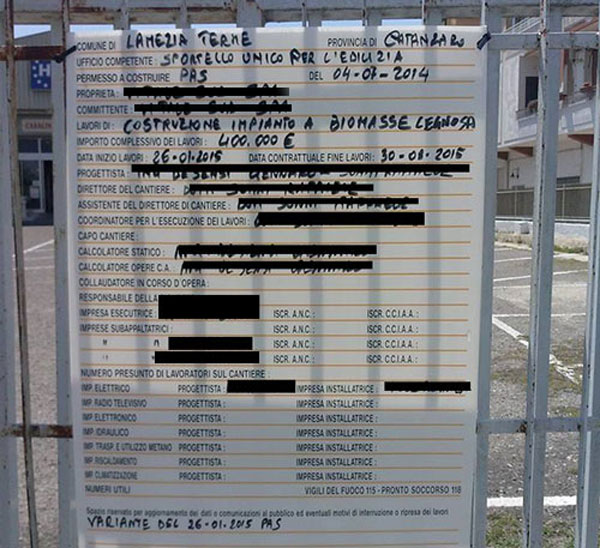 COMUNE DI LAMEZIA TERME PROVINCIA DI CATANZARO
UFFICIO COMPETENTE: SPORTELLO UNICO PER L'EDILIZIA
PERMESSO A COSTRUIRE PAS DEL 04-07-2014
PROPRIETA:
COMMITTENTE:
LAVORI DI: COSTRUZIONE IMPIANTO A BIOMASSE LEGNOSA
IMPORTO COMPLESSIVO DEI LAVORI: 400.000 €
DATA INIZIO LAVORI: 26-01-2015 DATA CONTRATTUALE FINE LAVORI: 30-08-2015
PROGETTISTA:
DIRETTORE DEL CANTIERE:
ASSISTENTE DEL DIRETTORE DI CANTIERE:
COORDINATORE PER L'ESECUZIONE DEI LAVORI:
CAPO CANTIERE:
CALCOLATORE STATICO:
CALCOLATORE OPERE C.A.
COLLAUDATORE IN CORSO D'OPERA:
RESPONSABILE DELLA
IMPRESA ESECUTRICE: ISCR. A.N.C.: ISCR. C.C.I.A.A.:
IMPRESE SUBAPPALTATRICI: ISCR. A.N.C.: ISCR. C.C.I.A.A.:
" " ISCR. A.N.C.: ISCR. C.C.I.A.A.:
" " ISCR. A.N.C.: ISCR. C.C.I.A.A.:
NUMERO PRESUNTO DI LAVORATORI SUL CANTIERE:
IMP. ELETTRICO PROGETTISTA: IMPRESA INSTALLATRICE:
IMP. RADIO TELEVISIVO PROGETTISTA: IMPRESA INSTALLATRICE:
IMP. ELETTRONICO PROGETTISTA: IMPRESA INSTALLATRICE:
IMP. IDRAULICO PROGETTISTA: IMPRESA INSTALLATRICE:
IMP. TRASP. E UTILIZZO METANO PROGETTISTA: IMPRESA INSTALLATRICE:
IMP. RISCALDAMENTO PROGETTISTA: IMPRESA INSTALLATRICE:
IMP. CLIMATIZZAZIONE PROGETTISTA: IMPRESA INSTALLATRICE:
NUMERI UTILI VIGILI DEL FUOCO 115 - PRONTO SOCCORSO 118
Spazio riservato per aggiornamento dei dati o comunicazioni al pubblico ed eventuali motivi di interruzione o ripresa dei lavori
VARIANTE DEL 26-01-2015 PAS